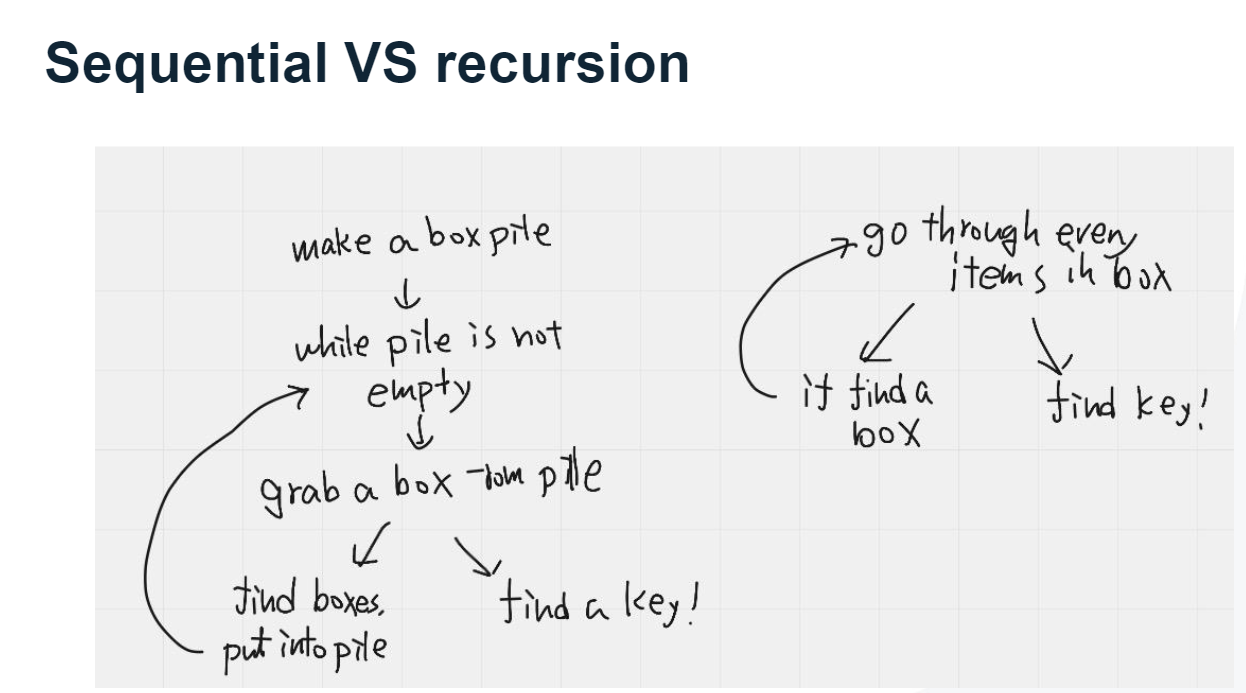 Sequential VS recursion
make a box pile
while pile is not
empty
grab a box from pile
find boxes,
put into pile
find a key!
go through every
items in box
if find a
box
find key!